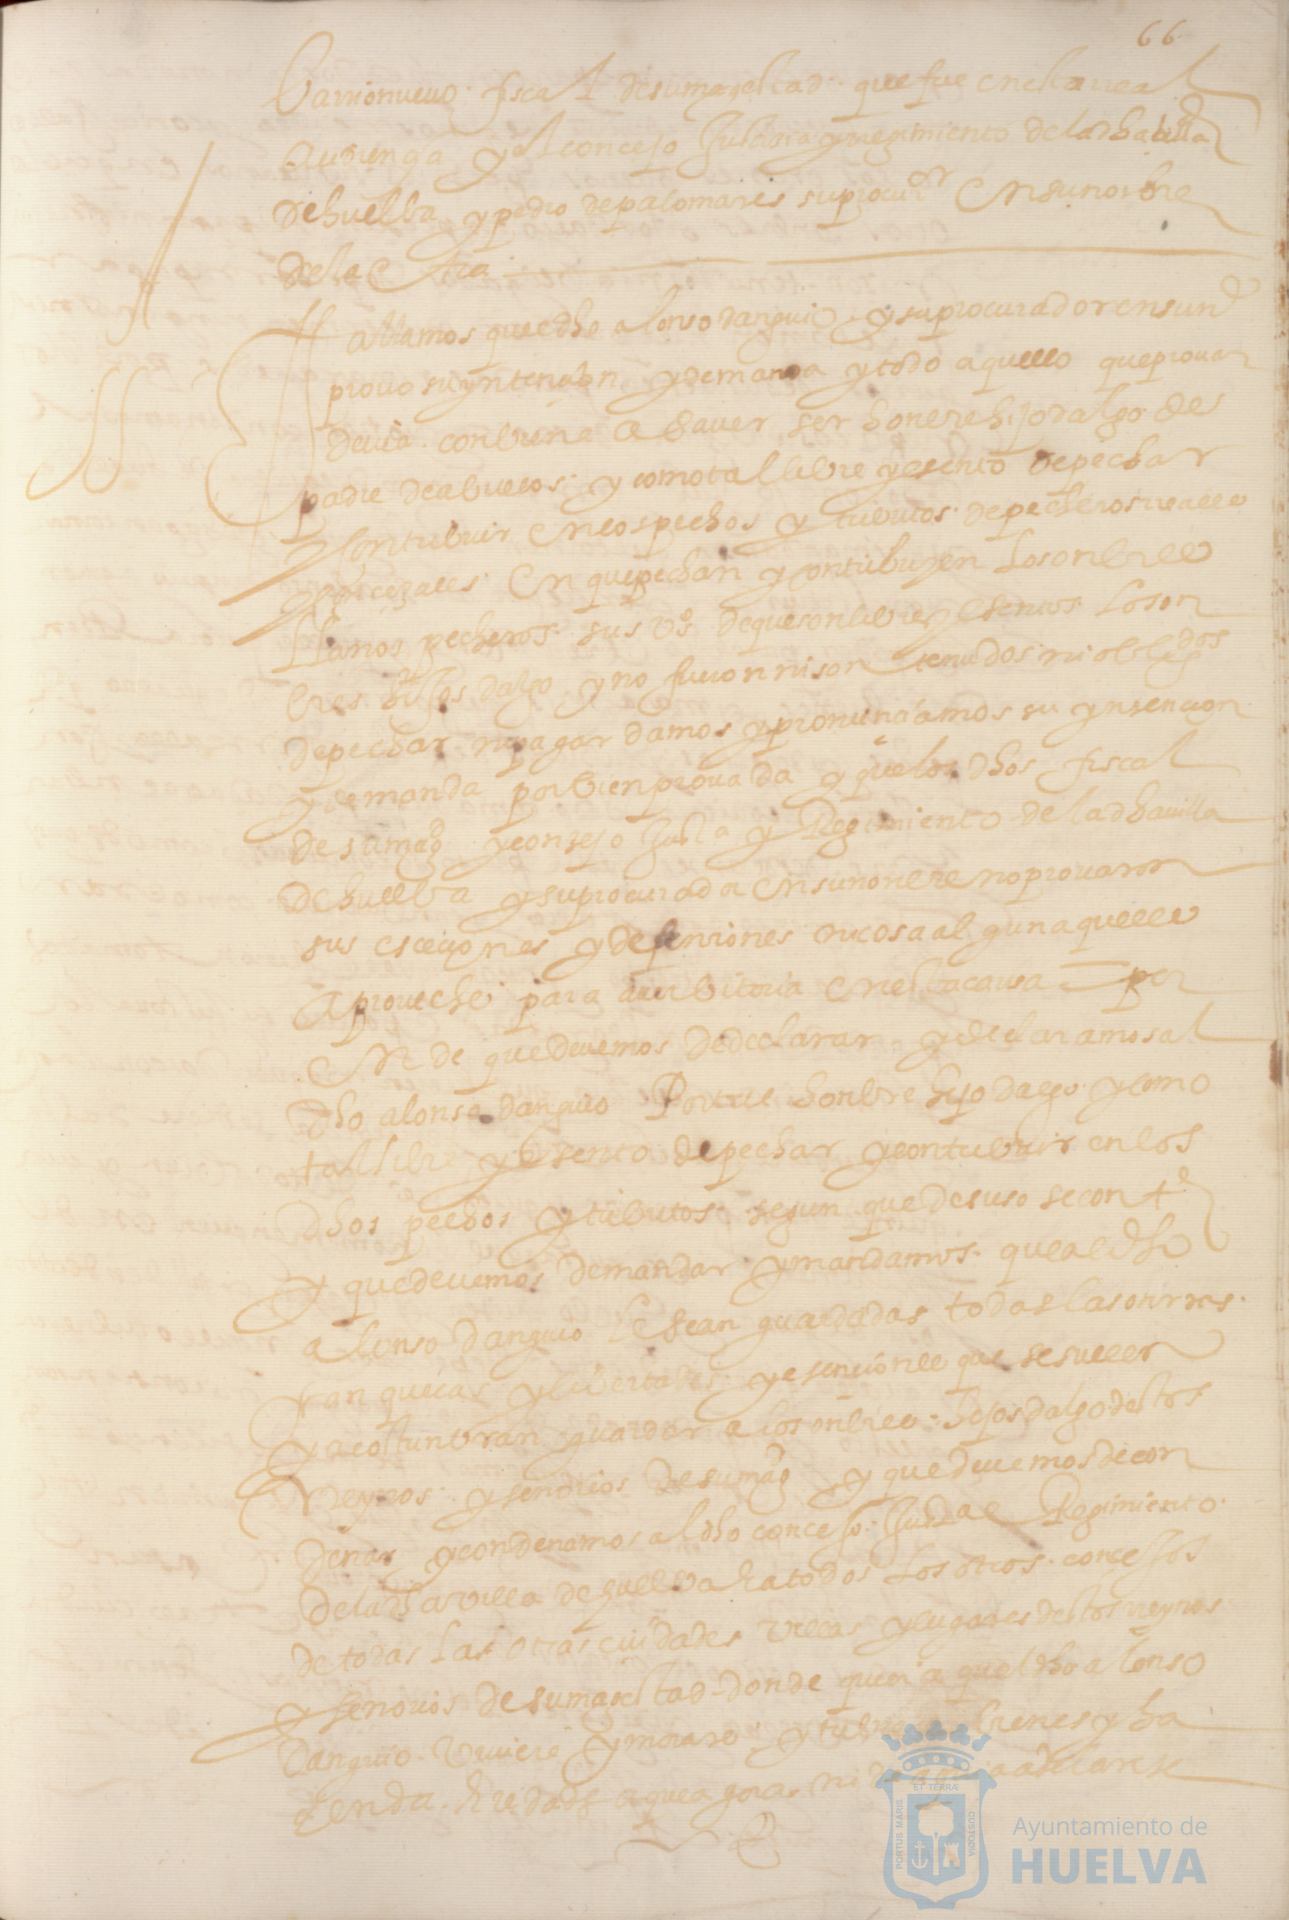 66
Barrionuevo fiscal de su magestad que fue en esta real
audiençia y el conçejo justiçia y regimiento de la dha billa
de huelba y pedro de palomares su procuror en su nonbre
de la otra
Hallamos que el dho alonso dangulo y su procurador en su ne
provo su yntençion y demanda y todo aquello que provar
devia conbiene a saver ser honbre hijodalgo de
padre de abuelos y como tal libre y esento de pechar
y contribuir en los pechos y tributos de pecheros reales
y conçejales en que pechan y contribuyen los onbres
llanos pecheros sus vos de que son libres y esentos los on
bres hijos dalgo y no fueron ni son tenudos ni obligados
de pechar ni pagar damos y pronunçiamos su yntencion
y demanda por bien provada y que los dhos fiscal
de su magd y consejo justa y Regimiento de la dha villa
de huelba y su procurador en su nonbre no provaron
sus esceçiones y defensiones ni cosa alguna que les
aproveche para aver bitoria en esta causa por
ende que devemos de declarar y declaramos al
dho alonso dangulo Por tal honbre hijodalgo y como
tal libre y esento de pechar y contribuir en los
dhos pechos y tributos segun que de suso se conte
y que devemos de mandar y mandamos que al dho
alonso dangulo le sean guardadas todas las onrras
franqueças y libertades y esençiones que se suelen
y acostunbran guardar a los onbres hijos dalgo destos
Reynos y señorios de su magd y que devemos de con
denar y condenamos al dho conçejo justa e Regimiento
de la dha villa de huelba ha todos los otros conçejos
de todas las otras çiudades villas y lugares destos reynos
y señorios de su magestad donde quiera que el dho alonso
dangulo viviere y morare y tubiere bienes y ha
zienda heredade a que agora ni de aqui adelante
PORTUS MARIS ET TERRÆ CUSTODIA
Ayuntamiento de
HUELVA